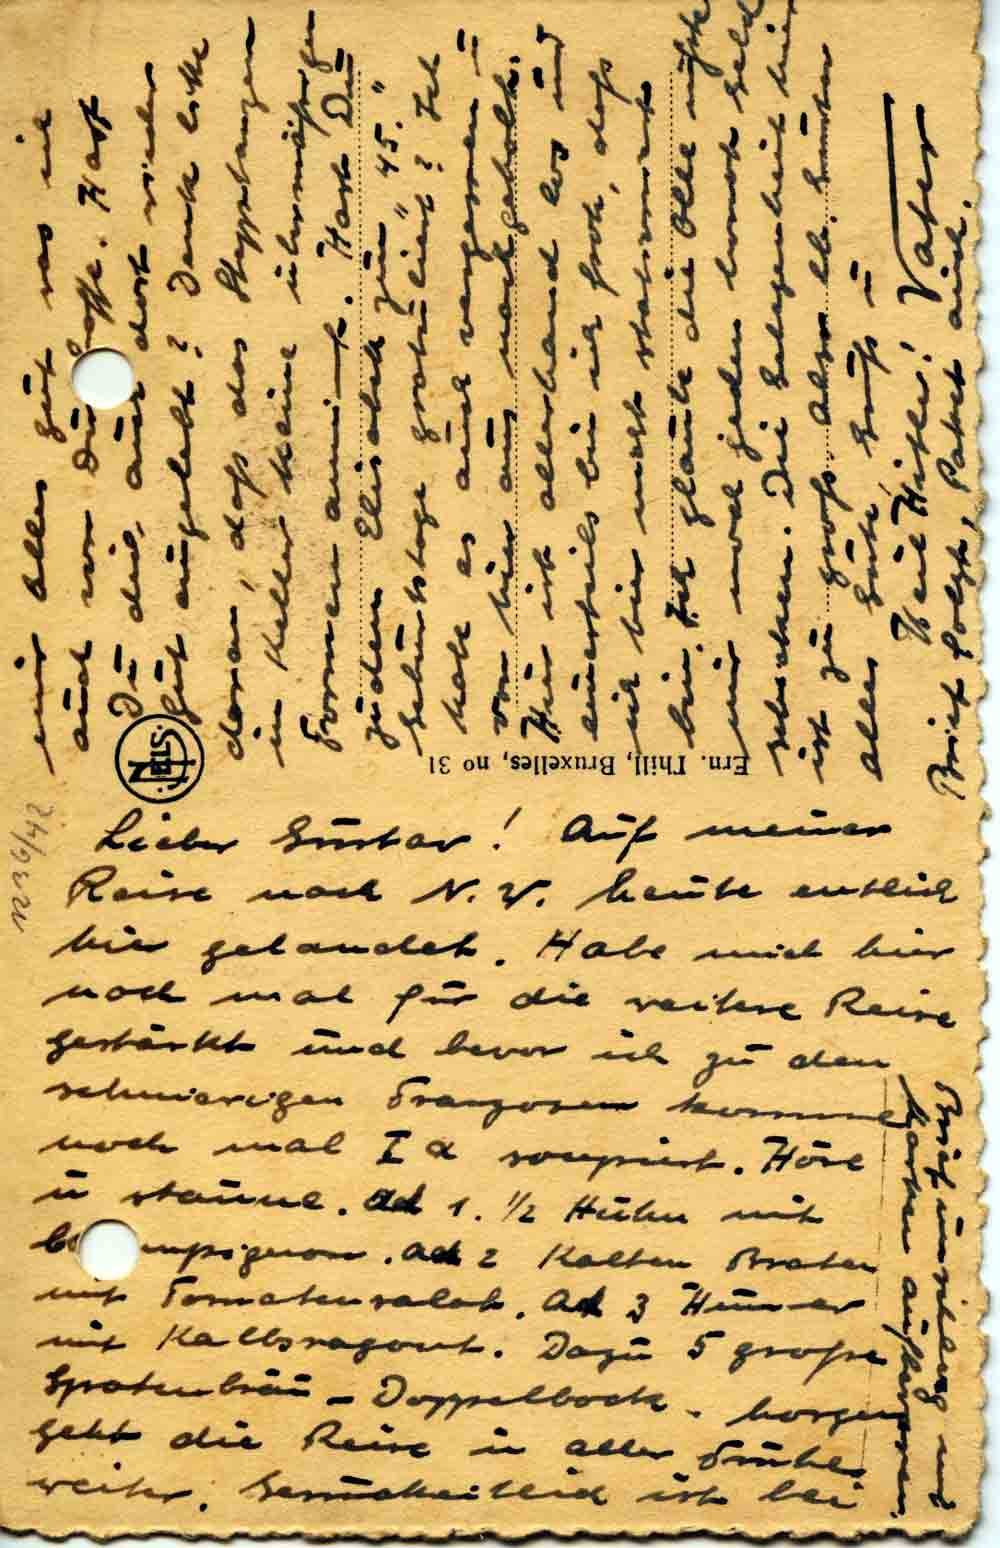 Lieber Gustav! Auf meiner
Reise nach N. W. heute entlich
hier gelandet. Habe mich hier
noch mal für die weitere Reise
gestärkt und bevor ich zu den
schmierigen Franzosen komme
noch mal Ia soupiert. Höre
u staune. Ad 1. 1/2 Huhn mit
mpignon. Ad 2 Kalten Braten
mit Tomatensalat. Ad 3 Hummer
mit Kalbsragout. Dazu 5 große
Spatenbräu - Doppelbock. Morgen
geht die Reise in aller Frühe
weiter. Gesundheitlich ist bei
mir alles gut was ich
auch von Dir hoffe. Hast
Du dich auch dort wieder
gut eingelebt? Denk bitte
daran, daß das
in Keller keine übermäßigen
Formen annimt. Hast Du
zudem Elisabeth zum "45."
Geburtstage gratuliert? Ich
habe es auch vergessen u
von hier aus nachgeholt.
Hier ist allerhand los und
einerteils bin ich froh, daß
ich hier nicht stationiert
bin. Ich glaube die Olle müßte
mir wol jeden Monat Geld
schicken. Die Gelegenheit hier
ist zu groß. Also lb. Gustav
alles Gute, Gruß u
Heil Hitler! Vater
Brief folgt, Paket auch.
Briefumschlag und
Karten aufheben.
Ern. Thill, Bruxelles, no 31
NELS
12/36/42